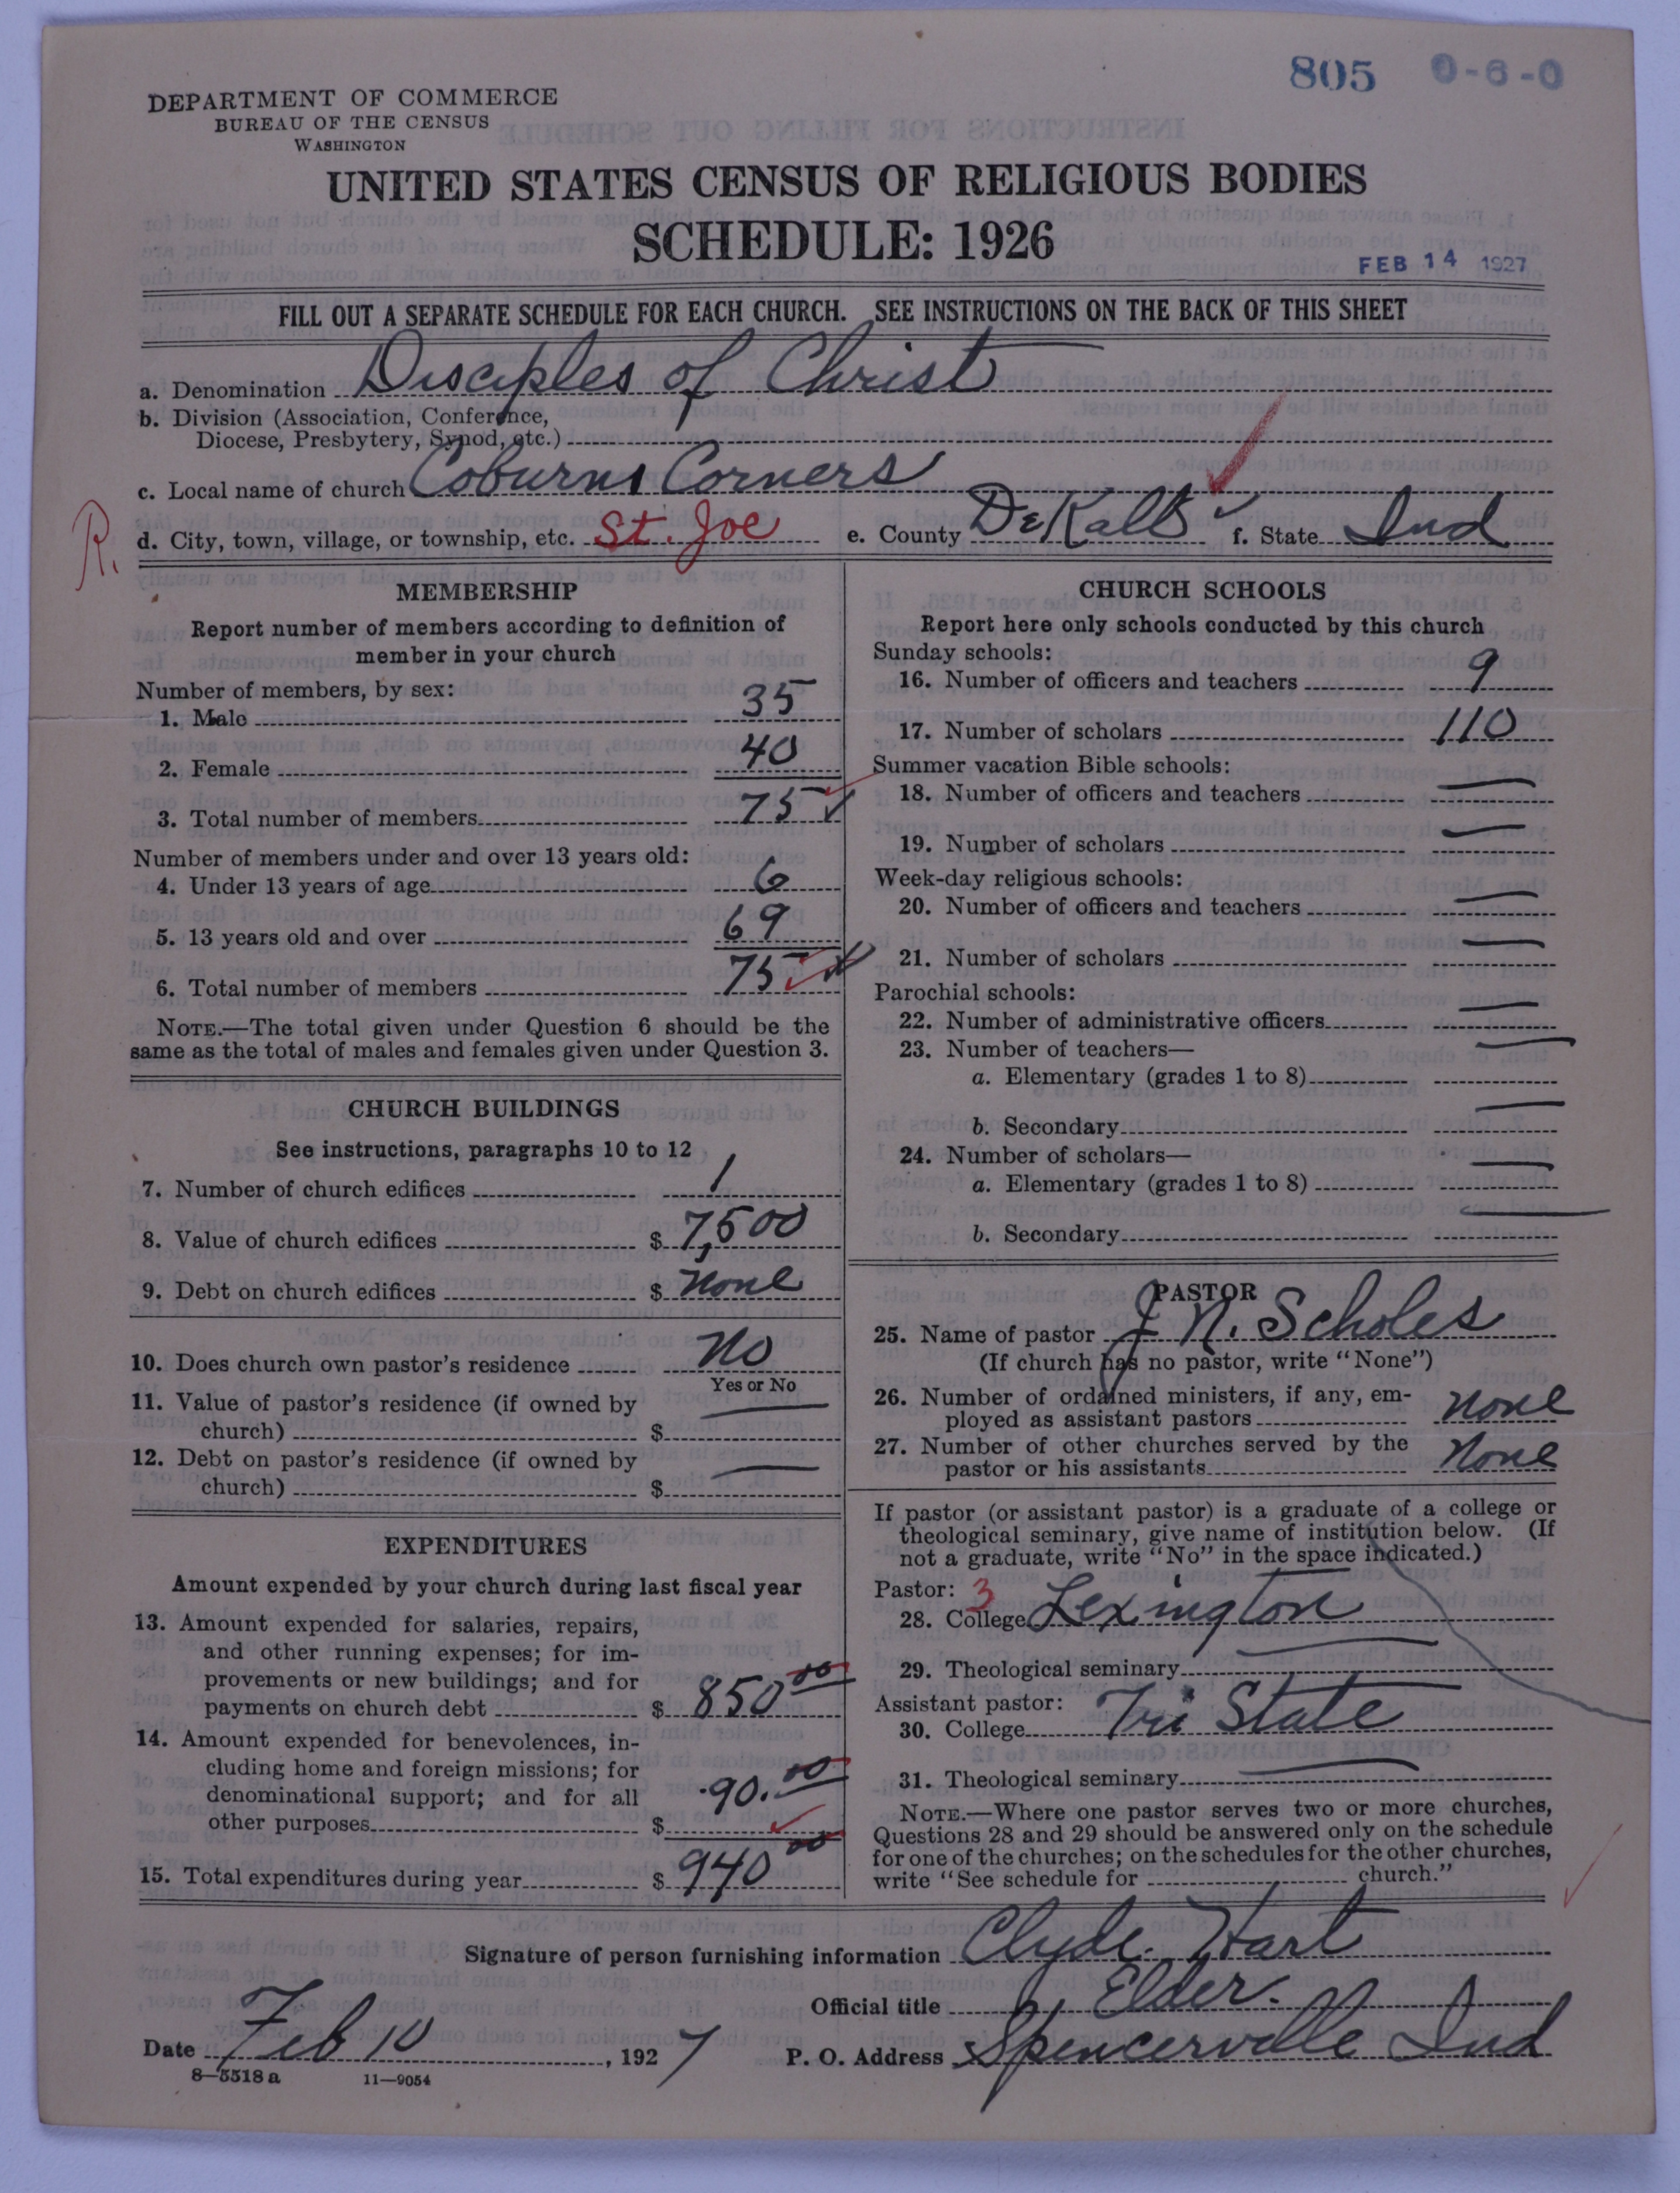 805 0-6-0
DEPARTMENT OF COMMERCE
BUREAU OF THE CENSUS
WASHINGTON
UNITED STATES CENSUS OF RELIGIOUS BODIES
SCHEDULE: 1926
FEB 14 1927
FILL OUT A SEPARATE SCHEDULE FOR EACH CHURCH. SEE INSTRUCTIONS ON THE BACK OF THIS SHEET
a. Denomination Disciples of Christ
b. Division (Association, Conference,
Diocese, Presbytery, Synod, etc.)
c. Local name of church Coburns Corners
R. d. City, town, village, or township, etc. St. Joe e. County DeKalb f. State Ind
MEMBERSHIP
Report number of members according to definition of
member in your church
Number of members, by sex:
1. Male 35
2. Female 40
3. Total number of members 75
Number of members under and over 13 years old:
4. Under 13 years of age 6
5. 13 years old and over 69
6. Total number of members 75
NOTE.—The total given under Question 6 should be the
same as the total of males and females given under Question 3.
CHURCH BUILDINGS
See instructions, paragraphs 10 to 12
7. Number of church edifices 1
8. Value of church edifices $ 7,500
9. Debt on church edifices $ none
10. Does church own pastor's residence No
Yes or No
11. Value of pastor's residence (if owned by
church) $ —
12. Debt on pastor's residence (if owned by
church) $ —
EXPENDITURES
Amount expended by your church during last fiscal year
13. Amount expended for salaries, repairs,
and other running expenses; for im-
provements or new buildings; and for
payments on church debt $ 850 00
14. Amount expended for benevolences, in-
cluding home and foreign missions; for
denominational support; and for all
other purposes $ 90.00
15. Total expenditures during year $ 940 00
CHURCH SCHOOLS
Report here only schools conducted by this church
Sunday schools:
16. Number of officers and teachers 9
17. Number of scholars 110
Summer vacation Bible schools:
18. Number of officers and teachers —
19. Number of scholars —
Week-day religious schools:
20. Number of officers and teachers —
21. Number of scholars —
Parochial schools:
22. Number of administrative officers —
23. Number of teachers—
a. Elementary (grades 1 to 8) —
b. Secondary —
24. Number of scholars—
a. Elementary (grades 1 to 8) —
b. Secondary —
PASTOR
25. Name of pastor J N. Scholes
(If church has no pastor, write "None")
26. Number of ordained ministers, if any, em-
ployed as assistant pastors none
27. Number of other churches served by the
pastor or his assistants None
If pastor (or assistant pastor) is a graduate of a college or
theological seminary, give name of institution below. (If
not a graduate, write "No" in the space indicated.)
Pastor: 3
28. College Lexington
29. Theological seminary —
Assistant pastor:
30. College Tri State
31. Theological seminary —
NOTE.—Where one pastor serves two or more churches,
Questions 28 and 29 should be answered only on the schedule
for one of the churches; on the schedules for the other churches,
write "See schedule for church."
Signature of person furnishing information Clyde Hart
Official title Elder.
Date Feb 10, 1927 P. O. Address Spencerville Ind
8—5518 a 11—9054